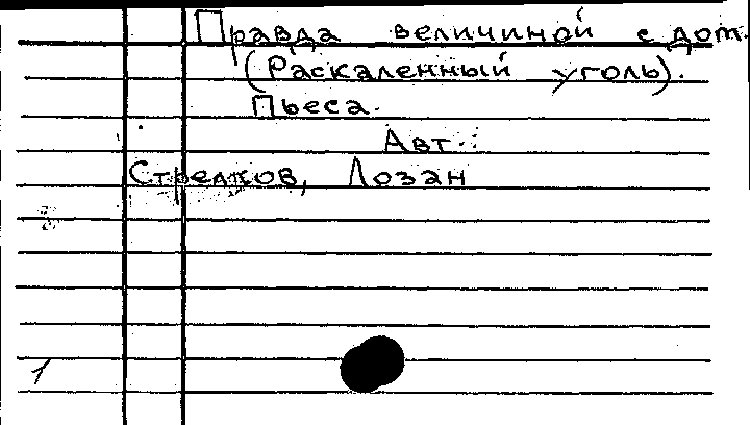 Правда величиной с дом.
(Раскаленный уголь).
Пьеса.
Авт.:
Стрелков, Лозан
1